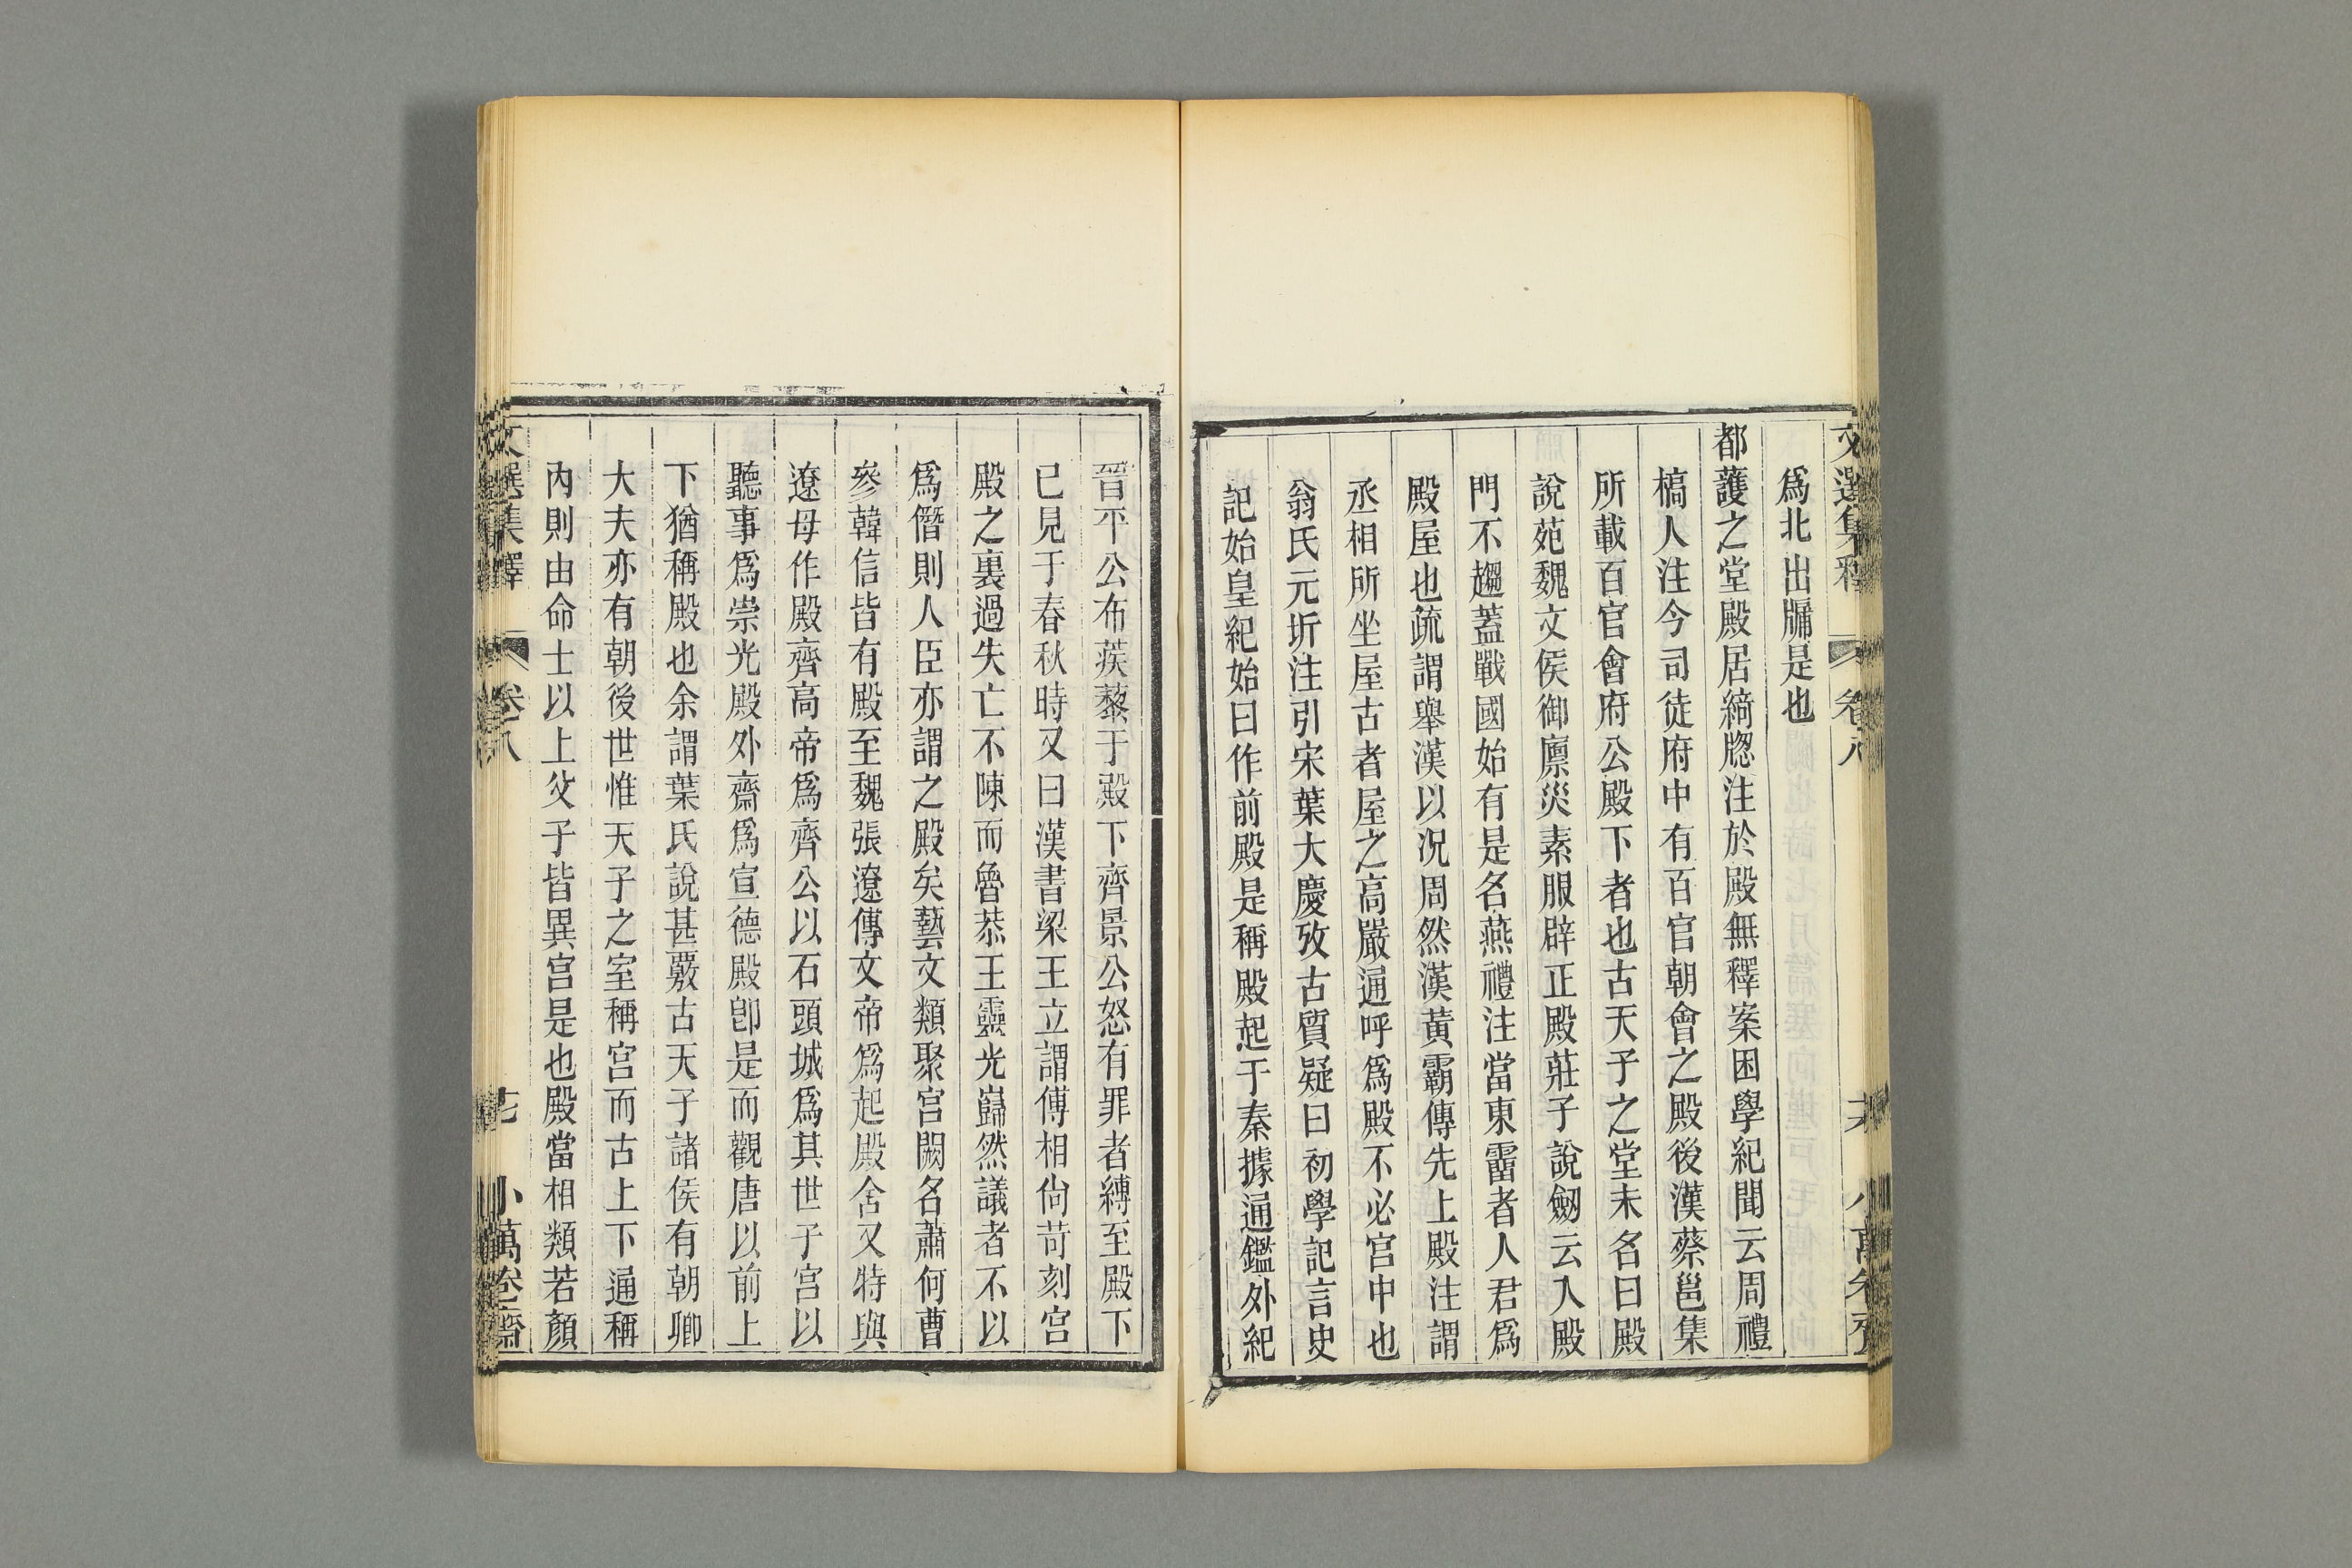 文選集釋 卷八
爲北出牖是也
都護之堂殿居綺牎注於殿無釋案困學紀聞云周禮
槁人注今司徒府中有百官朝會之殿後漢蔡邕集
所載百官會府公殿下者也古天子之堂未名曰殿
說苑魏文侯御廩災素服辟正殿莊子說劒云入殿
門不趨蓋戰國始有是名燕禮注當東霤者人君爲
殿屋也疏謂舉漢以況周然漢黃霸傳先上殿注謂
丞相所坐屋古者屋之高嚴通呼爲殿不必宮中也
翁氏元圻注引宋葉大慶攷古質疑曰初學記言史
記始皇紀始曰作前殿是稱殿起于秦據通鑑外紀
晉平公布蒺藜于殿下齊景公怒有罪者縛至殿下
已見于春秋時又曰漢書梁王立謂傅相尙苛刻宮
殿之裏過失亡不陳而魯恭王靈光巋然議者不以
爲僭則人臣亦謂之殿矣藝文類聚宮闕名蕭何曹
參韓信皆有殿至魏張遼傳文帝爲起殿舍又特與
遼母作殿齊高帝爲齊公以石頭城爲其世子宮以
聽事爲崇光殿外齋爲宣德殿卽是而觀唐以前上
下猶稱殿也余謂葉氏說甚覈古天子諸侯有朝卿
大夫亦有朝後世惟天子之室稱宮而古上下通稱
內則由命士以上父子皆異宮是也殿當相類若顏
文選集釋 卷八 小萬卷齋